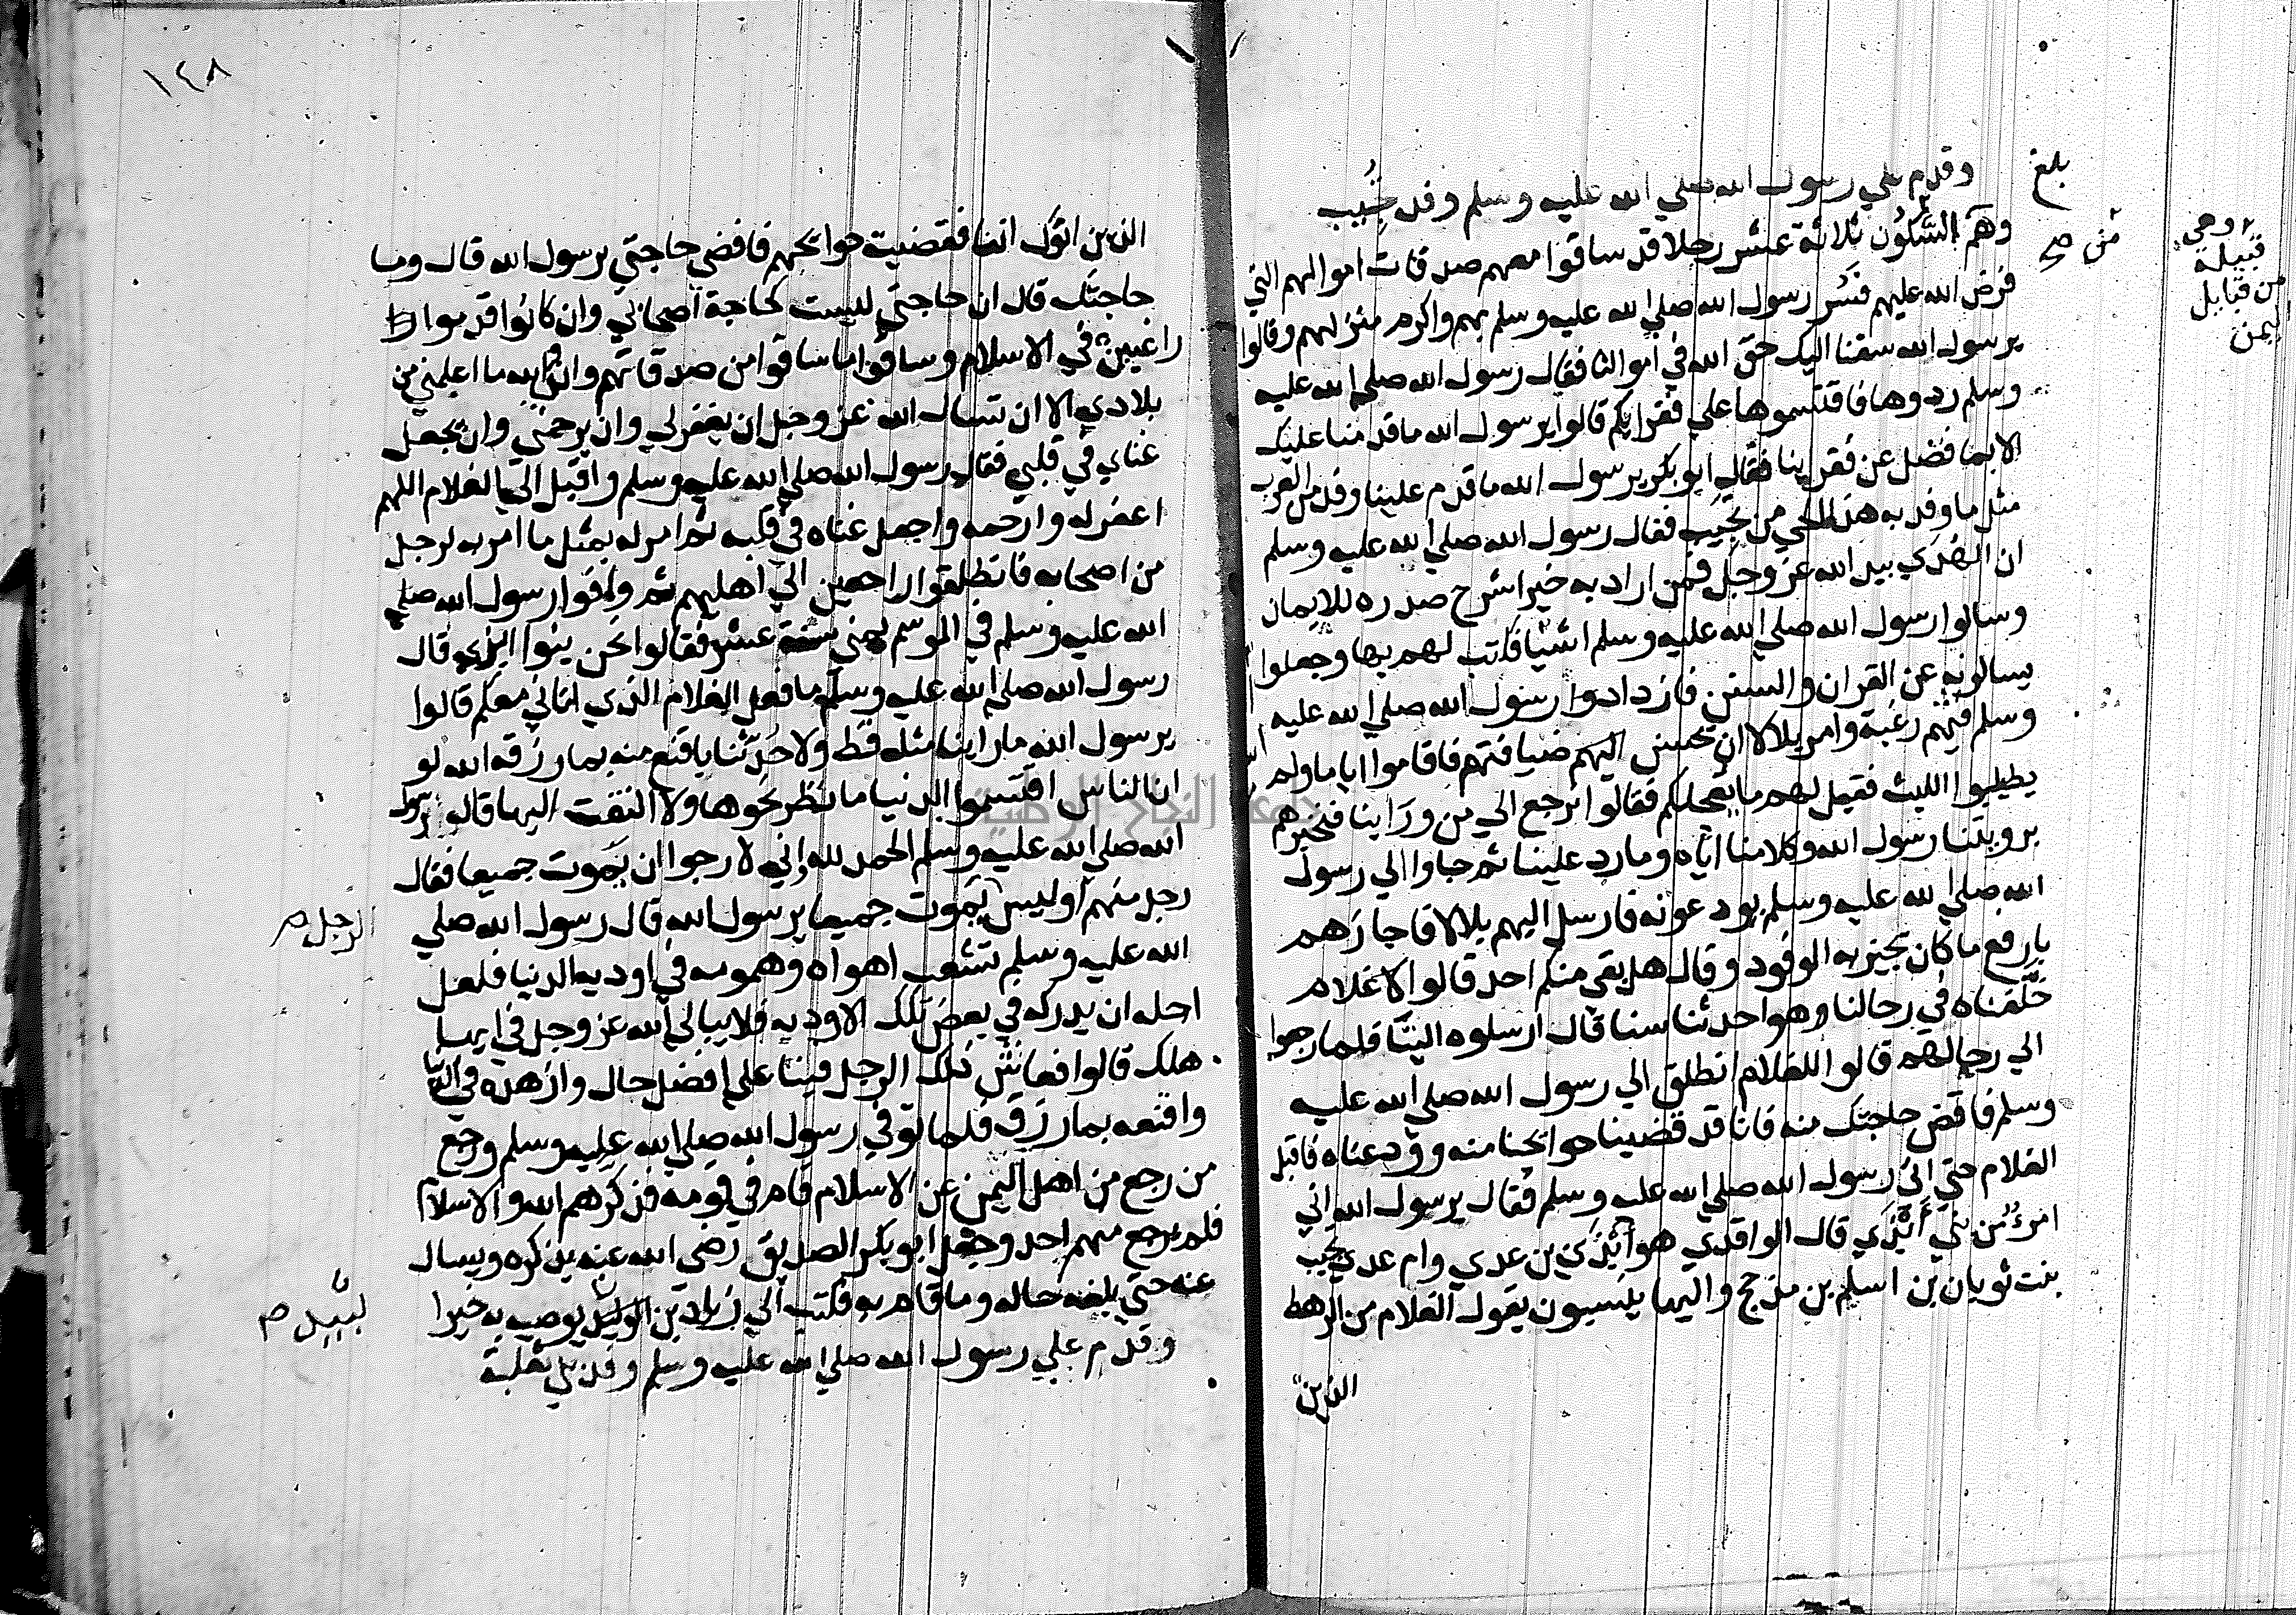 وقدم علي رسول الله صلي الله عليه وسلم وفد تجيب
وهم السكون ثلاثة عشر رجلا قد ساقوا معهم صدقات اموالهم التي
فرض الله عليهم فسر رسول الله صلي الله عليه وسلم بهم واكرم منزلهم وقالوا
يرسول الله سقنا اليك حق الله في اموالنا فقال رسول الله صلي الله عليه
وسلم ردوها فاقتسموها علي فقرايكم قالوا يرسول الله ما قدمنا عليك
الا بما فضل عن فقراينا فقال ابو بكر يرسول الله ما قدم علينا وفد من العرب
مثل ما وفد به هذا الحي من تجيب فقال رسول الله صلي الله عليه وسلم
ان الهدي بيد الله عز وجل فمن اراد به خيرا شرح صدره للايمان
وسالوا رسول الله صلي الله عليه وسلم اشيا فكتب لهم بها وجعلوا
يسالونه عن القران والسنن فازدادوا رسول الله صلي الله عليه
وسلم فيهم رغبة وامر بلالا ان تحسن اليهم ضيافتهم فاقاموا اياما ولم
يطيلوا اللبث فقيل لهم ما يعجلكم فقالوا نرجع الي من وراينا فنخبرهم
برويتنا رسول الله وكلامنا اياه وما رد علينا ثم جاوا الي رسول
الله صلي الله عليه وسلم يودعونه فارسل اليهم بلالا فاجازهم
بارفع ما كان يجيز به الوفود وقال هل بقي منكم احد قالوا لا غلام
خلفناه في رحالنا وهو احدثنا سنا قال ارسلوه الينا فلما رجعوا
الي رحالهم قالوا للغلام انطلق الي رسول الله صلي الله عليه
وسلم فاقض حاجتك منه فانا قد قضينا حوايجنا منه وودعناه فاقبل
الغلام حتي اتي رسول الله صلي الله عليه وسلم فقال يرسول الله اني
امرؤ من بني أبذي قال الواقدي هو أبذي بن عدي وام عدي تجيب
بنت ثوبان بن اسلم بن مذحج واليها ينسبون يقول الغلام من الرهط
الذين
بلغ
من صح
وهي
قبيلة
من قبايل
اليمن
١٤٨
الذين اتوك انفا فقضيت حوايجهم فاقضي حاجتي يرسول الله قال وما
حاجتك قال ان حاجتي ليست كحاجة اصحابي وان كانوا قدموا
راغبين في الاسلام وساقوا ما ساقوا من صدقاتهم واني والله ما اعلمني من
بلادي الا ان تسال الله عز وجل ان يغفر لي وان يرحمني وان يجعل
غناي في قلبي فقال رسول الله صلي الله عليه وسلم واقبل الي الغلام اللهم
اغفر له وارحمه واجعل غناه في قلبه ثم امر له بمثل ما امر به لرجل
من اصحابه فانطلقوا راجعين الي اهليهم ثم وافوا رسول الله صلي
الله عليه وسلم في الموسم بمني سنة عشر فقالوا نحن بنوا ابذي قال
رسول الله صلي الله عليه وسلم ما فعل الغلام الذي اتاني معكم قالوا
يرسول الله ما راينا مثله قط ولا حدثنا باقنع منه بما رزقه الله لو
ان الناس اقتسموا الدنيا ما نظر نحوها ولا التفت اليها قال رسول
الله صلي الله عليه وسلم الحمد لله اني لارجوا ان يموت جميعا فقال
رجل منهم أوليس يموت جميعا يرسول الله قال رسول الله صلي
الله عليه وسلم تشعب اهواه وهمومه في اودية الدنيا فلعل
اجله ان يدركه في بعض تلك الاودية فلا يبالي الله عز وجل في ايها
هلك قالوا فعاش ذلك الرجل فينا علي افضل حال وازهده في الدنيا
واقنعه بما رزق فلما توفي رسول الله صلي الله عليه وسلم ورجع
من رجع من اهل اليمن عن الاسلام قام في قومه فذكرهم الله والاسلام
فلم يرجع منهم احد وجعل ابو بكر الصديق رضي الله عنه يذكره ويسال
عنه حتي بلغه حاله وما قام به فكتب الي زياد بن الوليد يوصيه به خيرا
وقدم علي رسول الله صلي الله عليه وسلم وفد بني ثعلبة
الرجل
لبيد
جامعة النجاح الوطنية